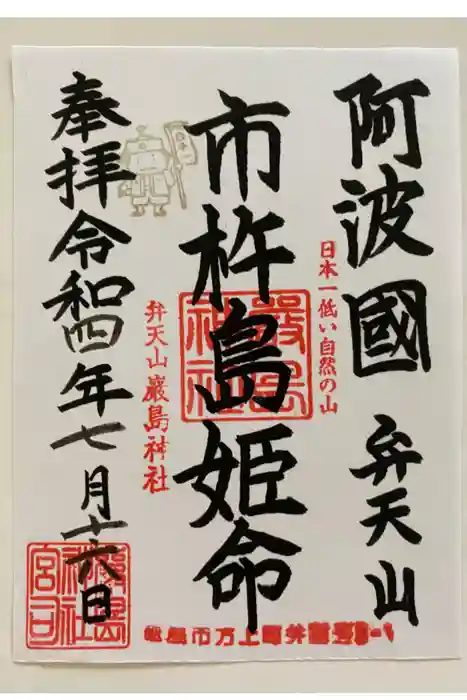 阿波國 弁天山
日本一低い自然の山
市杵島姫命
嚴島神社
弁天山嚴島神社
奉拝令和四年七月十六日
宮司